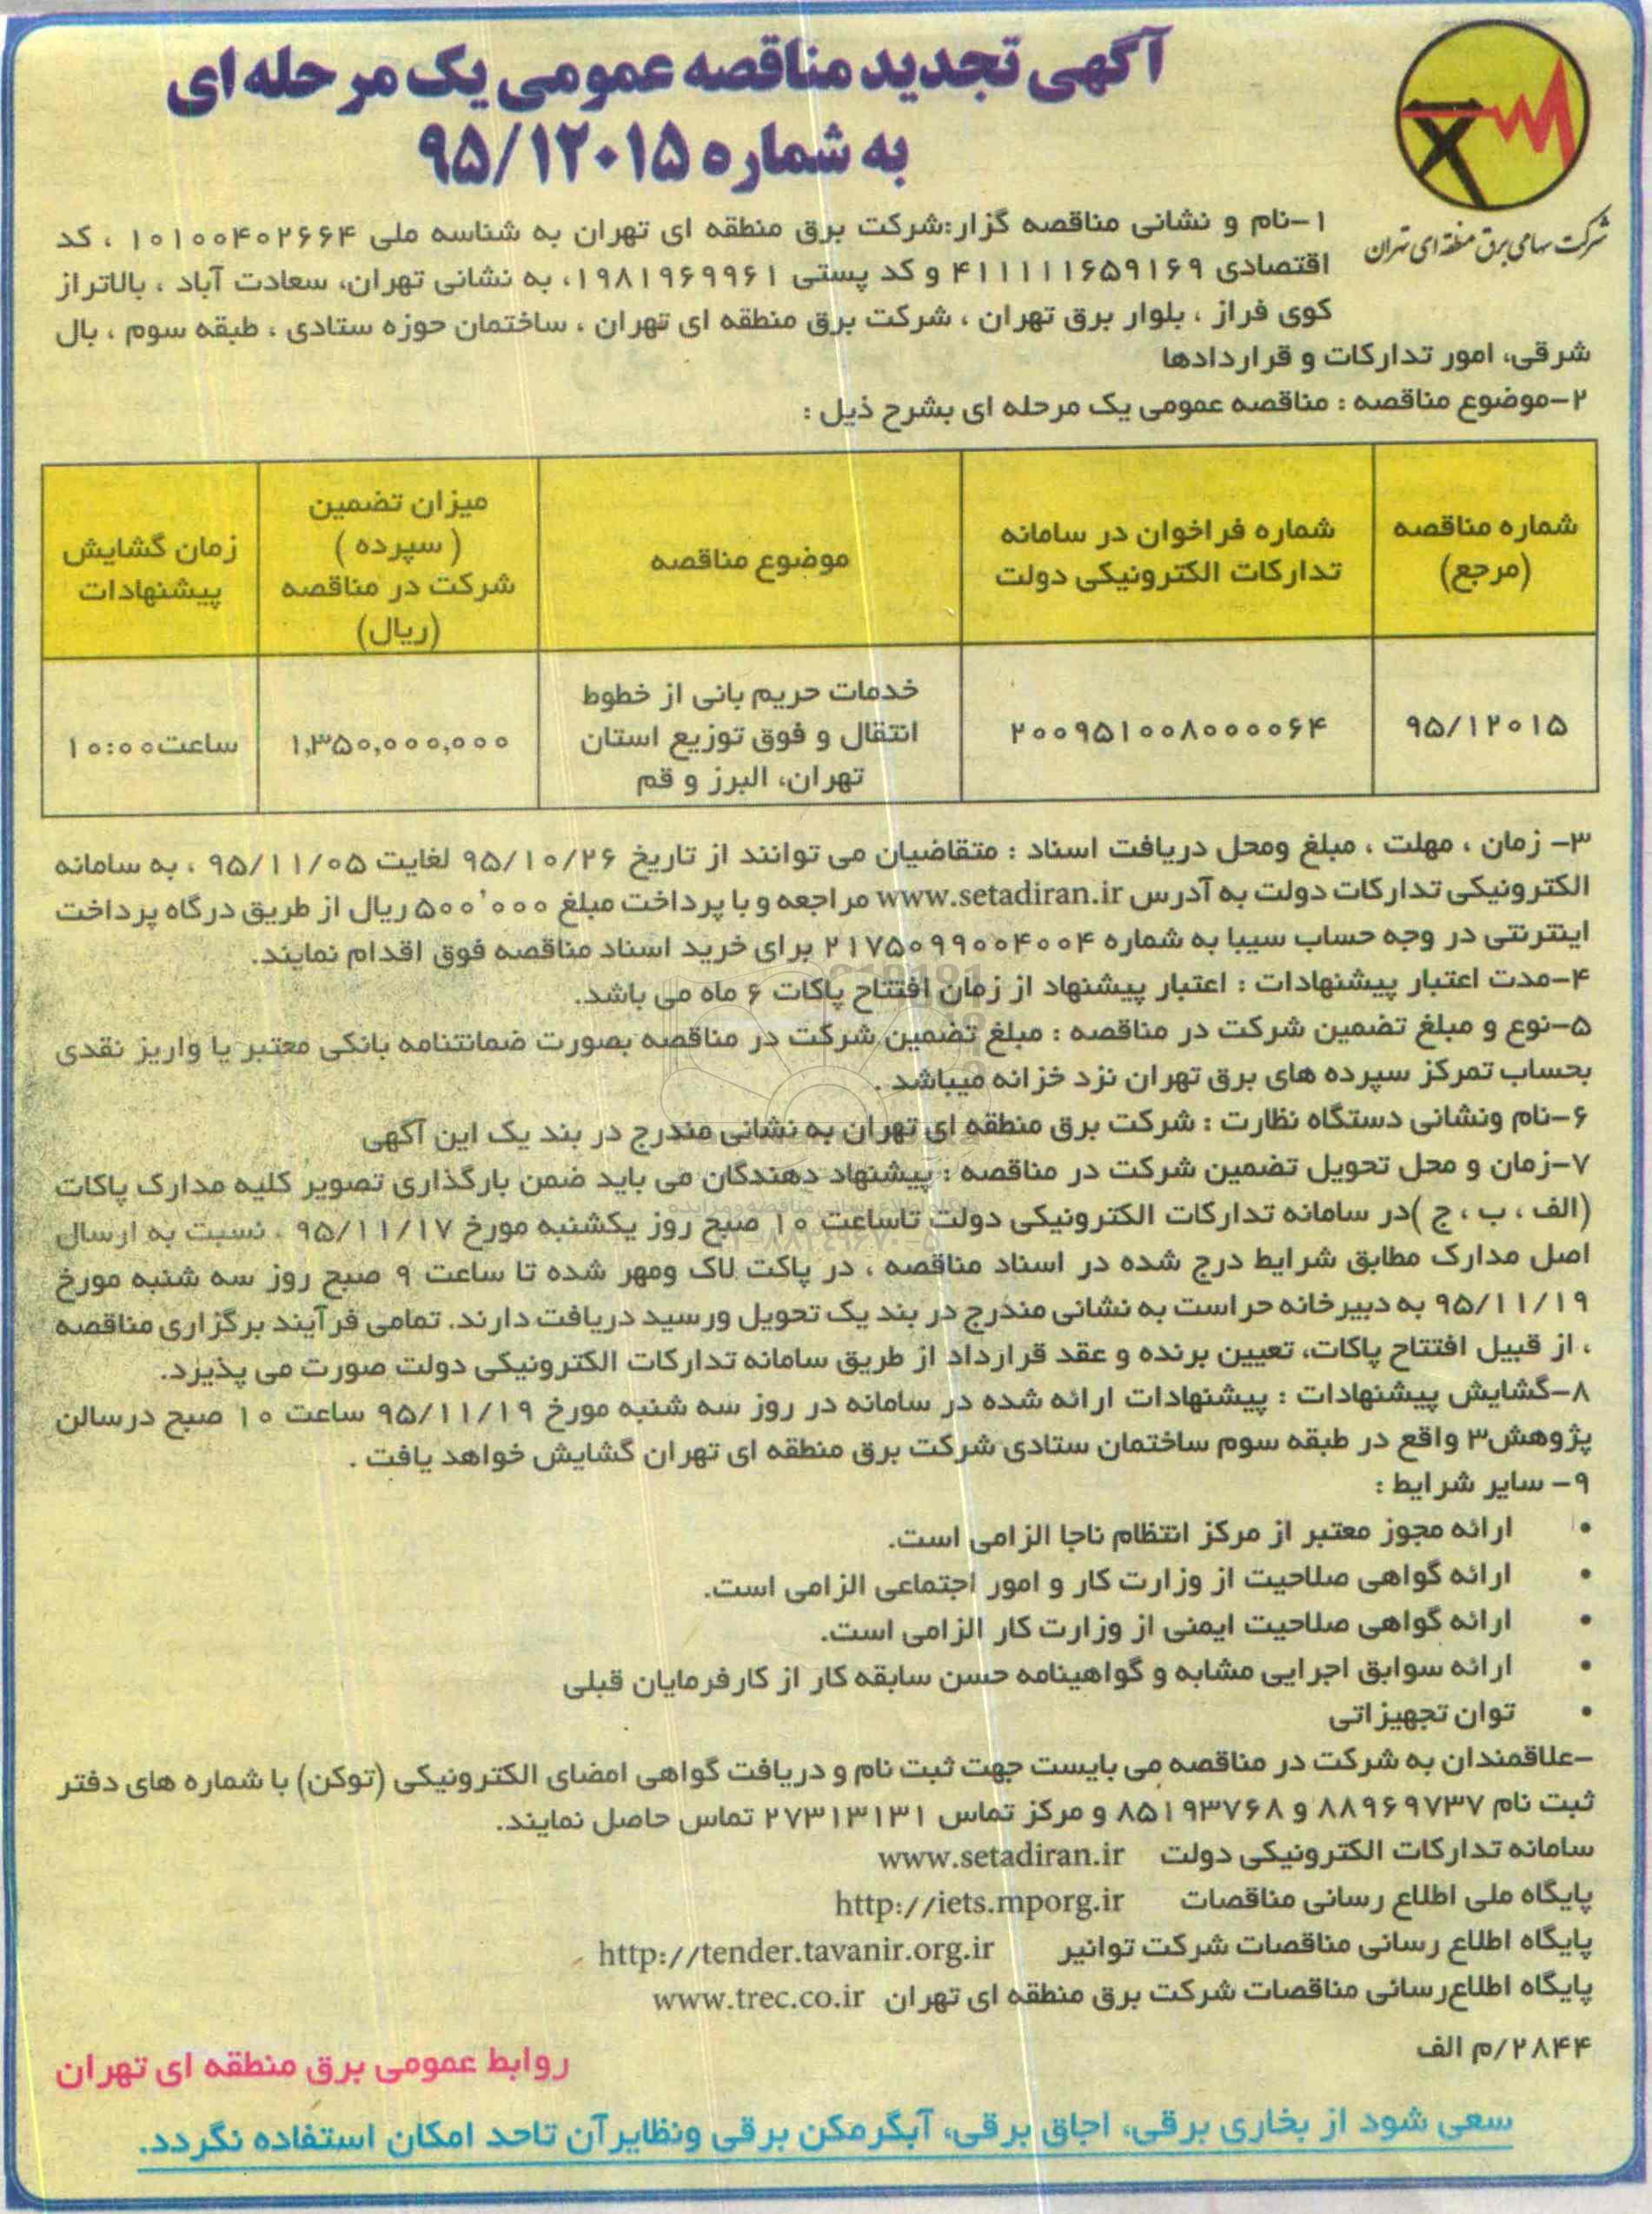 آگهی تجدید مناقصه عمومی یک مرحله ای
به شماره ۹۵/۱۲۰۱۵
شرکت سهامی برق منطقه ای تهران
۱-نام و نشانی مناقصه گزار:شرکت برق منطقه ای تهران به شناسه ملی ۱۰۱۰۰۴۰۲۶۶۴ ، کد
اقتصادی ۴۱۱۱۱۱۶۵۹۱۶۹ و کد پستی ۱۹۸۱۹۶۹۹۶۱، به نشانی تهران، سعادت آباد ، بالاتر از
کوی فراز ، بلوار برق تهران ، شرکت برق منطقه ای تهران ، ساختمان حوزه ستادی ، طبقه سوم ، بال
شرقی، امور تدارکات و قراردادها
۲-موضوع مناقصه : مناقصه عمومی یک مرحله ای بشرح ذیل :
شماره مناقصه
(مرجع)
شماره فراخوان در سامانه
تدارکات الکترونیکی دولت
موضوع مناقصه
میزان تضمین
( سپرده )
شرکت در مناقصه
(ریال)
زمان گشایش
پیشنهادات
۹۵/۱۲۰۱۵
۲۰۰۹۵۱۰۰۸۰۰۰۰۶۴
خدمات حریم بانی از خطوط
انتقال و فوق توزیع استان
تهران، البرز و قم
۱,۳۵۰,۰۰۰,۰۰۰
ساعت۱۰:۰۰
۳- زمان ، مهلت ، مبلغ ومحل دریافت اسناد : متقاضیان می توانند از تاریخ ۹۵/۱۰/۲۶ لغایت ۹۵/۱۱/۰۵ ، به سامانه
الکترونیکی تدارکات دولت به آدرس www.setadiran.ir مراجعه و با پرداخت مبلغ ۵۰۰٬۰۰۰ ریال از طریق درگاه پرداخت
اینترنتی در وجه حساب سیبا به شماره ۲۱۷۵۰۹۹۰۰۴۰۰۴ برای خرید اسناد مناقصه فوق اقدام نمایند.
۴-مدت اعتبار پیشنهادات : اعتبار پیشنهاد از زمان افتتاح پاکات ۶ ماه می باشد.
۵-نوع و مبلغ تضمین شرکت در مناقصه : مبلغ تضمین شرکت در مناقصه بصورت ضمانتنامه بانکی معتبر یا واریز نقدی
بحساب تمرکز سپرده های برق تهران نزد خزانه میباشد .
۶-نام ونشانی دستگاه نظارت : شرکت برق منطقه ای تهران به نشانی مندرج در بند یک این آگهی
۷-زمان و محل تحویل تضمین شرکت در مناقصه : پیشنهاد دهندگان می باید ضمن بارگذاری تصویر کلیه مدارک پاکات
(الف ، ب ، ج )در سامانه تدارکات الکترونیکی دولت تاساعت ۱۰ صبح روز یکشنبه مورخ ۹۵/۱۱/۱۷ ، نسبت به ارسال
اصل مدارک مطابق شرایط درج شده در اسناد مناقصه ، در پاکت لاک ومهر شده تا ساعت ۹ صبح روز سه شنبه مورخ
۹۵/۱۱/۱۹ به دبیرخانه حراست به نشانی مندرج در بند یک تحویل ورسید دریافت دارند. تمامی فرآیند برگزاری مناقصه
، از قبیل افتتاح پاکات، تعیین برنده و عقد قرارداد از طریق سامانه تدارکات الکترونیکی دولت صورت می پذیرد.
۸-گشایش پیشنهادات : پیشنهادات ارائه شده در سامانه در روز سه شنبه مورخ ۹۵/۱۱/۱۹ ساعت ۱۰ صبح درسالن
پژوهش۳ واقع در طبقه سوم ساختمان ستادی شرکت برق منطقه ای تهران گشایش خواهد یافت .
۹- سایر شرایط :
• ارائه مجوز معتبر از مرکز انتظام ناجا الزامی است.
• ارائه گواهی صلاحیت از وزارت کار و امور اجتماعی الزامی است.
• ارائه گواهی صلاحیت ایمنی از وزارت کار الزامی است.
• ارائه سوابق اجرایی مشابه و گواهینامه حسن سابقه کار از کارفرمایان قبلی
• توان تجهیزاتی
-علاقمندان به شرکت در مناقصه می بایست جهت ثبت نام و دریافت گواهی امضای الکترونیکی (توکن) با شماره های دفتر
ثبت نام ۸۸۹۶۹۷۳۷ و ۸۵۱۹۳۷۶۸ و مرکز تماس ۲۷۳۱۳۱۳۱ تماس حاصل نمایند.
سامانه تدارکات الکترونیکی دولت www.setadiran.ir
پایگاه ملی اطلاع رسانی مناقصات http://iets.mporg.ir
پایگاه اطلاع رسانی مناقصات شرکت توانیر http://tender.tavanir.org.ir
پایگاه اطلاع‌رسانی مناقصات شرکت برق منطقه ای تهران www.trec.co.ir
۲۸۴۴/م الف
روابط عمومی برق منطقه ای تهران
سعی شود از بخاری برقی، اجاق برقی، آبگرمکن برقی ونظایرآن تاحد امکان استفاده نگردد.